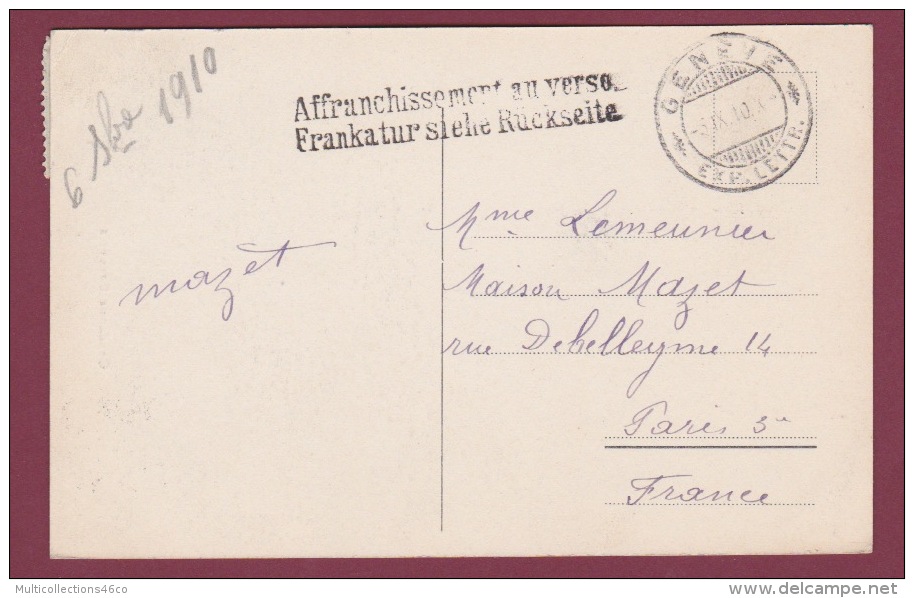 6 Sbre 1910
Affranchissement au verso.
Frankatur siehe Rückseite
GENÈVE
EXP. LETTR.
Mme Lemeunier
Maison Mazet
rue Debelleyme 14
Paris 3e
France
mazet
Multicollections46co
delcampe.net